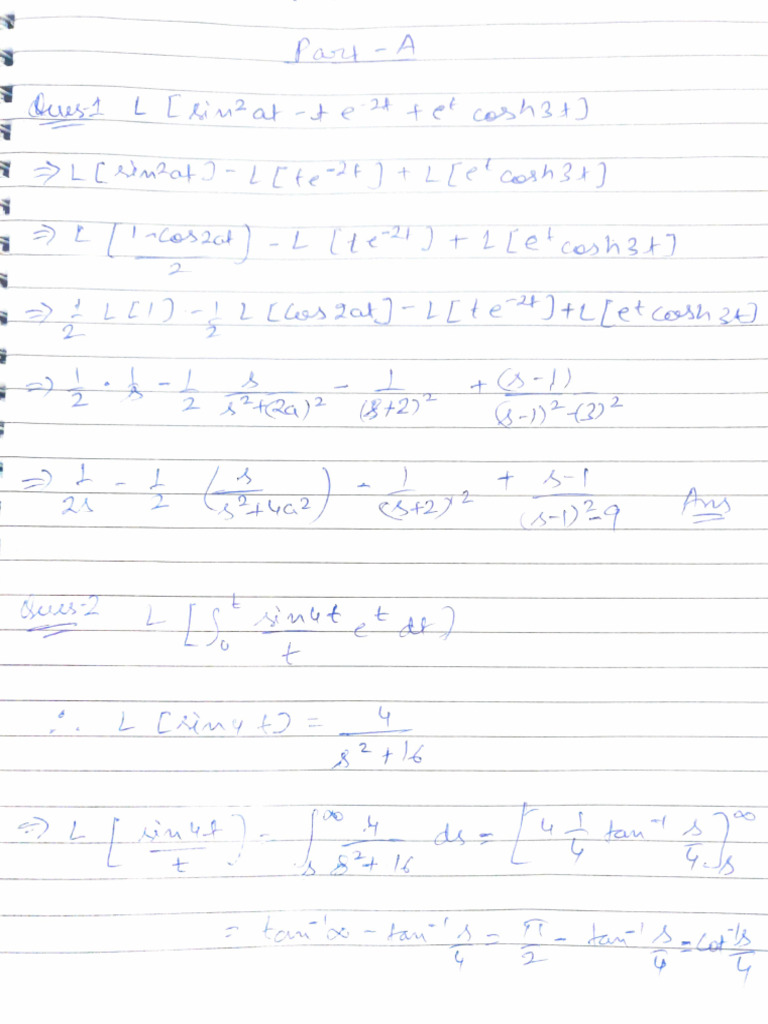 Part - A
Ques-1 L [sin²at - t e⁻²ᵗ + eᵗ cosh3t]
⇒ L[sin²at] - L[te⁻²ᵗ] + L[eᵗ cosh3t]
⇒ L [(1-cos2at)/2] - L [te⁻²ᵗ] + L[eᵗ cosh3t]
⇒ 1/2 L[1] - 1/2 L[cos2at] - L[te⁻²ᵗ] + L[eᵗ cosh3t]
⇒ 1/2 · 1/s - 1/2 s/(s²+(2a)²) - 1/(s+2)² + (s-1)/((s-1)²-(3)²)
⇒ 1/2s - 1/2 (s/(s²+4a²)) - 1/(s+2)² + (s-1)/((s-1)²-9) Ans
Ques-2 L [∫₀ᵗ (sin4t/t) eᵗ dt]
∴ L [sin4t] = 4/(s²+16)
⇒ L [sin4t/t] = ∫ₛ^∞ 4/(s²+16) ds = [4 1/4 tan⁻¹ s/4]ₛ^∞
= tan⁻¹∞ - tan⁻¹ s/4 = π/2 - tan⁻¹ s/4 = cot⁻¹ s/4